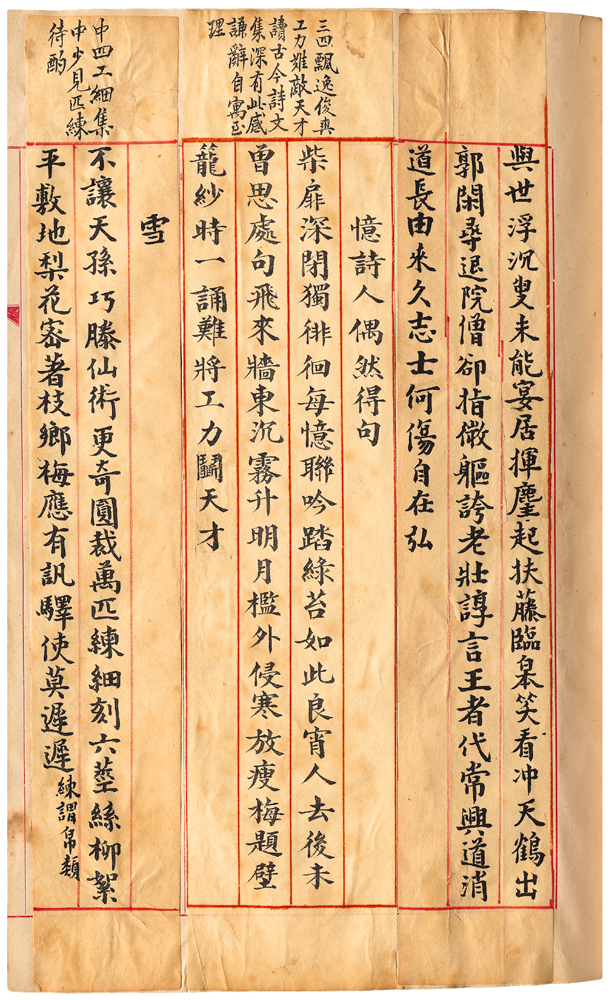 三四飄逸俊爽
工力難敵天才
讀古今詩文
集深有此感
謙辭自寓至
理
中四工細集
中少見匹練
待酌
與世浮沉叟未能宴居揮麈起扶藤臨皋笑看冲天鶴出
郭閑尋退院僧卻指微軀誇老壯諄言王者代常興道消
道長由來久志士何傷自在弘
憶詩人偶然得句
柴扉深閉獨徘徊每憶聯吟踏綠苔如此良宵人去後未
曾思處句飛來牆東沉霧升明月檻外侵寒放瘦梅題壁
籠紗時一誦難將工力鬭天才
雪
不讓天孫巧滕仙術更奇圓裁萬匹練細刻六莖絲柳絮
平敷地梨花密著枝鄉梅應有訊驛使莫遲遲練謂帛類